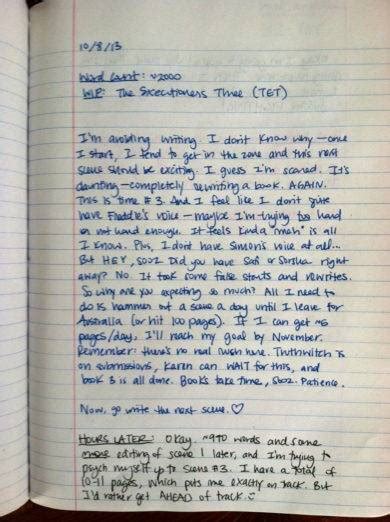 10/8/13
Word Count: ~2000
WIP: The Executioners Three (TET)
I'm avoiding writing. I don't know why—once
I start, I tend to get in the zone and this next
scene should be exciting. I guess I'm scared. It's
daunting—completely rewriting a book. AGAIN.
This is time #3. And I feel like I don't quite
have Freddie's voice—maybe I'm trying too hard
or not hard enough. It feels kinda "meh" is all
I know. Plus, I don't have Simon's voice at all...
But HEY, sooz Did you have Safi or Sorsha right
away? No. It took some false starts and rewrites.
So why are you expecting so much? All I need to
do is hammer out a scene a day until I leave for
Australia (or hit 100 pages). If I can get ~5
pages/day, I'll reach my goal by November.
Remember: there's no real rush here. Truthwitch is
on submissions, Karen can WAIT for this, and
book 3 is all done. Books take time, Sooz. Patience.
Now, go write the next scene. ♡
HOURS LATER: Okay. ~970 words and some
more editing of scene 1 later, and I'm trying to
psych myself up to scene #3. I have a total of
10-11 pages, which puts me exactly on track. But
I'd rather get AHEAD of track. :)